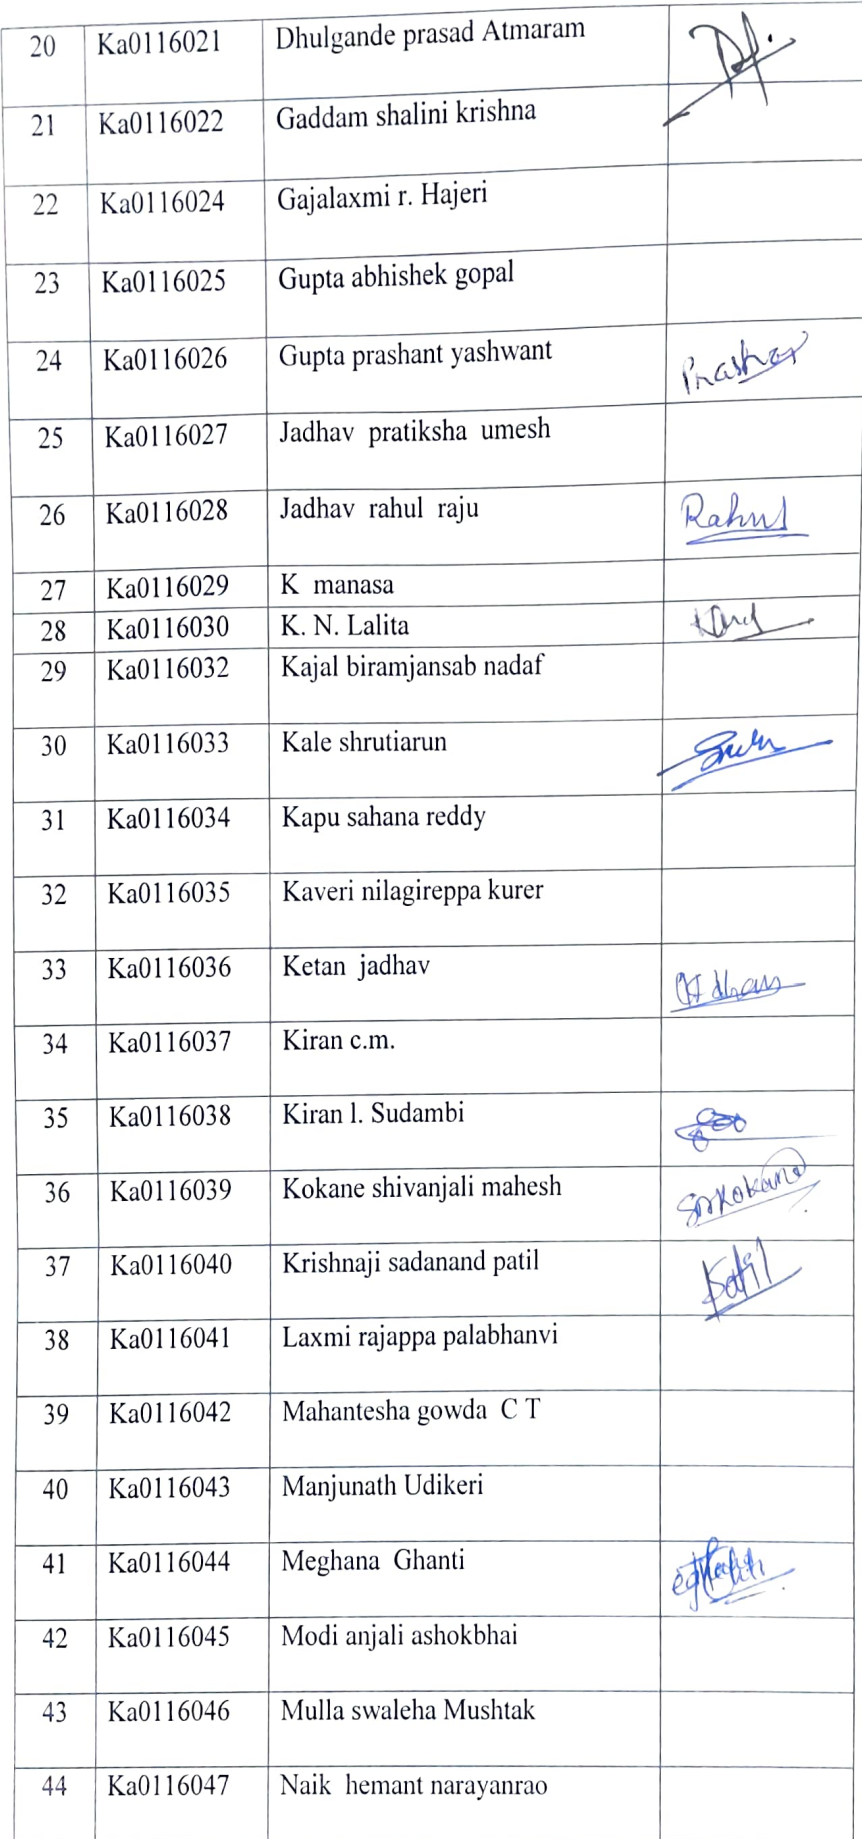 20 Ka0116021 Dhulgande prasad Atmaram
21 Ka0116022 Gaddam shalini krishna
22 Ka0116024 Gajalaxmi r. Hajeri
23 Ka0116025 Gupta abhishek gopal
24 Ka0116026 Gupta prashant yashwant
25 Ka0116027 Jadhav pratiksha umesh
26 Ka0116028 Jadhav rahul raju Rahul
27 Ka0116029 K manasa
28 Ka0116030 K. N. Lalita
29 Ka0116032 Kajal biramjansab nadaf
30 Ka0116033 Kale shrutiarun
31 Ka0116034 Kapu sahana reddy
32 Ka0116035 Kaveri nilagireppa kurer
33 Ka0116036 Ketan jadhav
34 Ka0116037 Kiran c.m.
35 Ka0116038 Kiran l. Sudambi
36 Ka0116039 Kokane shivanjali mahesh
37 Ka0116040 Krishnaji sadanand patil
38 Ka0116041 Laxmi rajappa palabhanvi
39 Ka0116042 Mahantesha gowda C T
40 Ka0116043 Manjunath Udikeri
41 Ka0116044 Meghana Ghanti
42 Ka0116045 Modi anjali ashokbhai
43 Ka0116046 Mulla swaleha Mushtak
44 Ka0116047 Naik hemant narayanrao